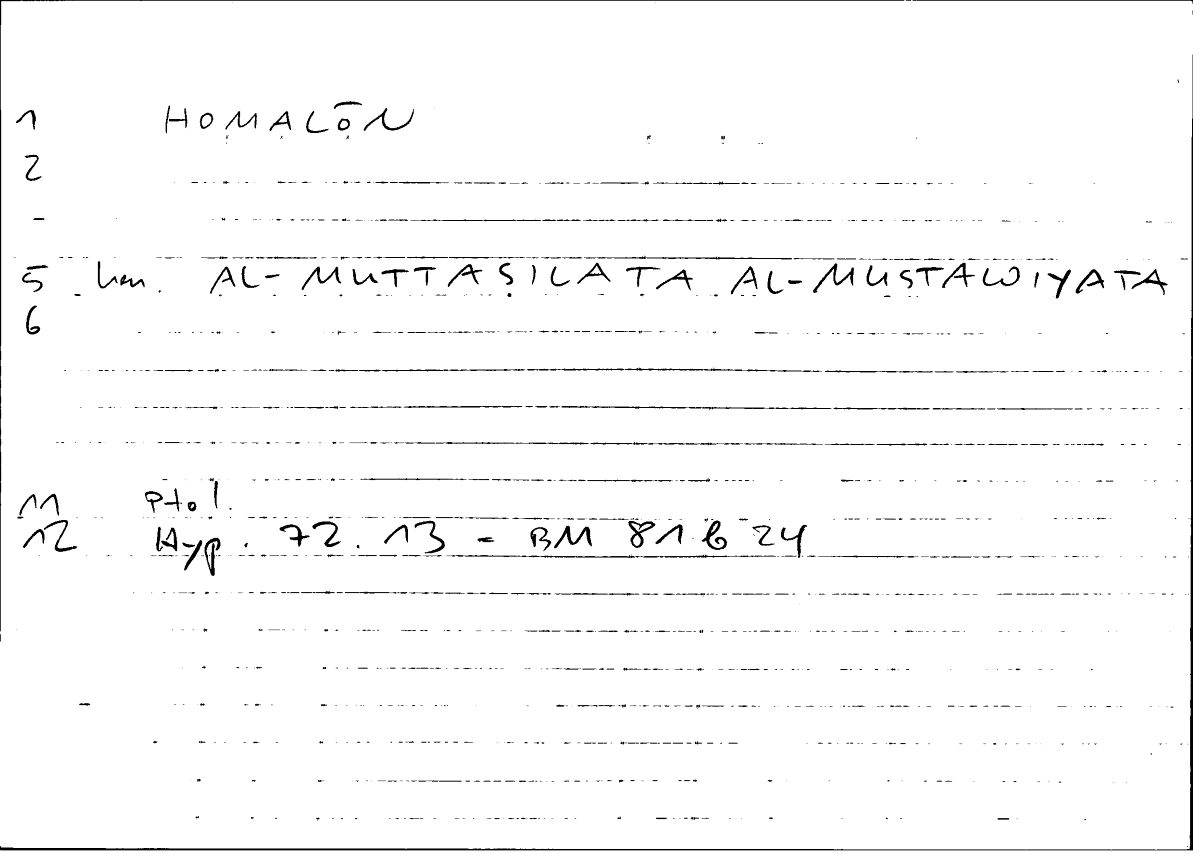 1 HOMALŌN
2
-
5 hen. AL-MUTTAṢILATA AL-MUSTAWIYATA
6
11 Ptol.
12 Hyp. 72.13 - BM 81 b 24